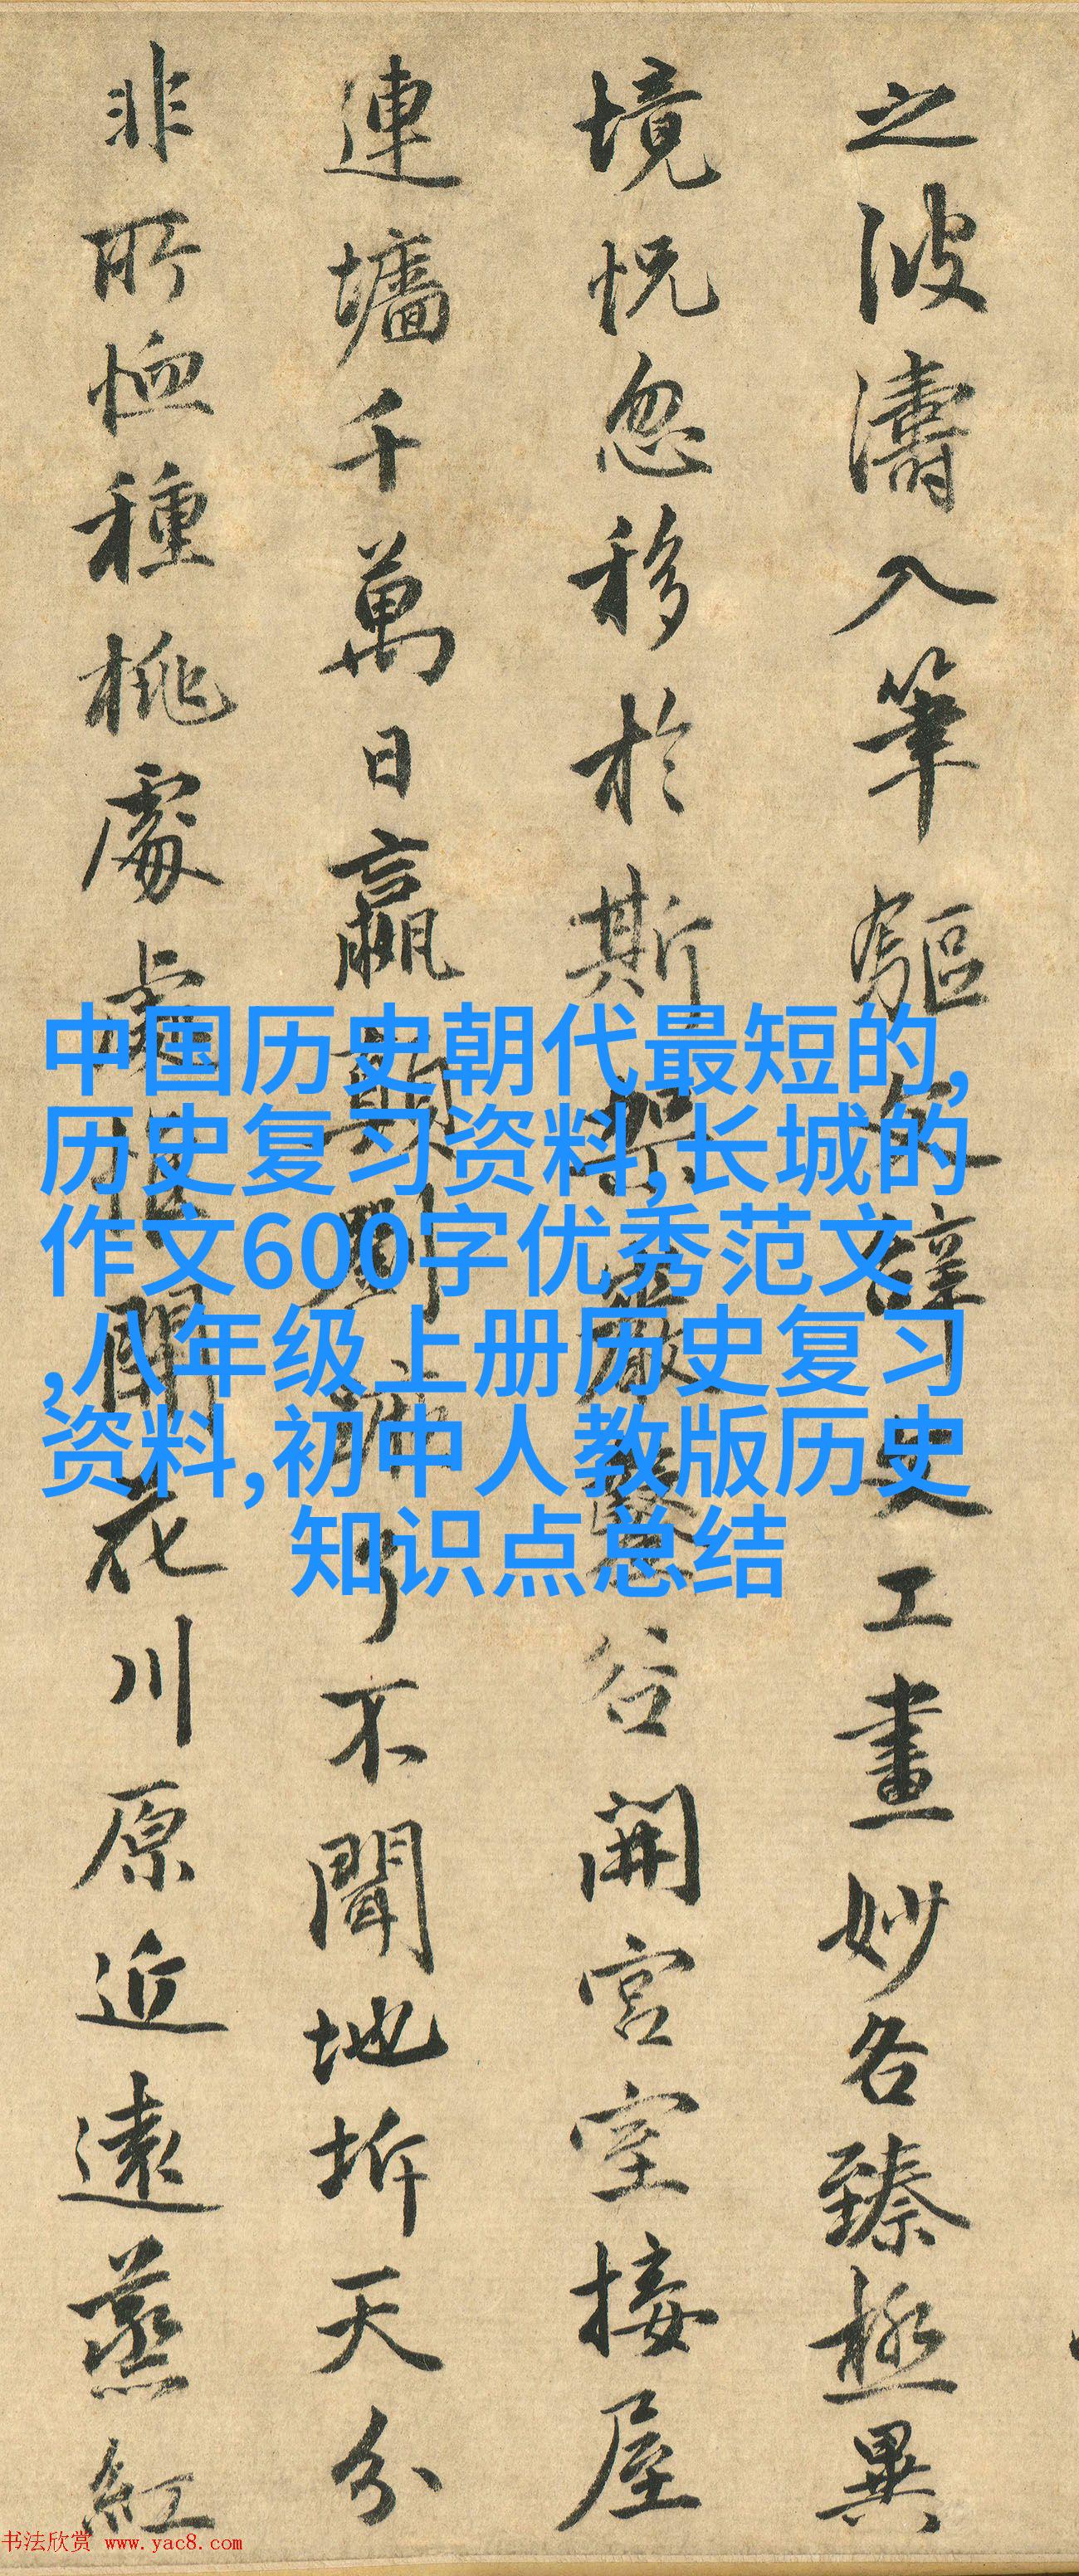 之波濤入筆驅文辭文工畫妙各臻極異
境怳忽移於斯架巖鑿谷開宮室接屋
連墻千萬日嬴顛劉蹶了不聞地坼天分
非所恤種桃處處惟開花川原近遠蒸紅
中国历史朝代最短的,
历史复习资料,长城的
作文600字优秀范文
,八年级上册历史复习
资料,初中人教版历史
知识点总结
书法欣赏 www.yac8.com